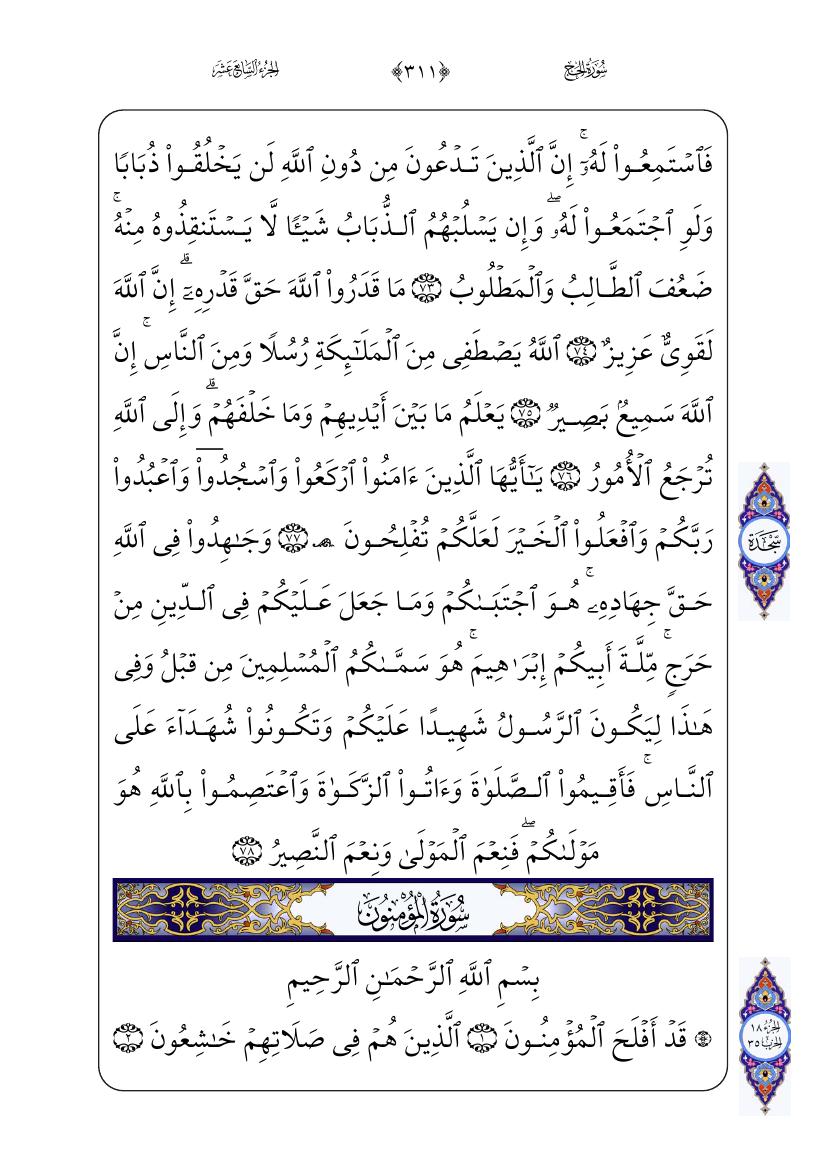 سُورَةُ الحَجِّ ﴿٣١١﴾ الجُزْءُ السَّابِعَ عَشَرَ
فَٱسْتَمِعُوا۟ لَهُۥٓ ۚ إِنَّ ٱلَّذِينَ تَدْعُونَ مِن دُونِ ٱللَّهِ لَن يَخْلُقُوا۟ ذُبَابًا
وَلَوِ ٱجْتَمَعُوا۟ لَهُۥ ۖ وَإِن يَسْلُبْهُمُ ٱلذُّبَابُ شَيْـًٔا لَّا يَسْتَنقِذُوهُ مِنْهُ ۚ
ضَعُفَ ٱلطَّالِبُ وَٱلْمَطْلُوبُ ٧٣ مَا قَدَرُوا۟ ٱللَّهَ حَقَّ قَدْرِهِۦٓ ۗ إِنَّ ٱللَّهَ
لَقَوِىٌّ عَزِيزٌ ٧٤ ٱللَّهُ يَصْطَفِى مِنَ ٱلْمَلَـٰٓئِكَةِ رُسُلًا وَمِنَ ٱلنَّاسِ ۚ إِنَّ
ٱللَّهَ سَمِيعٌۢ بَصِيرٌ ٧٥ يَعْلَمُ مَا بَيْنَ أَيْدِيهِمْ وَمَا خَلْفَهُمْ ۗ وَإِلَى ٱللَّهِ
تُرْجَعُ ٱلْأُمُورُ ٧٦ يَـٰٓأَيُّهَا ٱلَّذِينَ ءَامَنُوا۟ ٱرْكَعُوا۟ وَٱسْجُدُوا۟ وَٱعْبُدُوا۟
رَبَّكُمْ وَٱفْعَلُوا۟ ٱلْخَيْرَ لَعَلَّكُمْ تُفْلِحُونَ ۩ ٧٧ وَجَـٰهِدُوا۟ فِى ٱللَّهِ
سَجْدَة
حَقَّ جِهَادِهِۦ ۚ هُوَ ٱجْتَبَىٰكُمْ وَمَا جَعَلَ عَلَيْكُمْ فِى ٱلدِّينِ مِنْ
حَرَجٍ ۚ مِّلَّةَ أَبِيكُمْ إِبْرَٰهِيمَ ۚ هُوَ سَمَّىٰكُمُ ٱلْمُسْلِمِينَ مِن قَبْلُ وَفِى
هَـٰذَا لِيَكُونَ ٱلرَّسُولُ شَهِيدًا عَلَيْكُمْ وَتَكُونُوا۟ شُهَدَآءَ عَلَى
ٱلنَّاسِ ۚ فَأَقِيمُوا۟ ٱلصَّلَوٰةَ وَءَاتُوا۟ ٱلزَّكَوٰةَ وَٱعْتَصِمُوا۟ بِٱللَّهِ هُوَ
مَوْلَىٰكُمْ ۖ فَنِعْمَ ٱلْمَوْلَىٰ وَنِعْمَ ٱلنَّصِيرُ ٧٨
سُورَةُ الْمُؤْمِنُونَ
بِسْمِ ٱللَّهِ ٱلرَّحْمَـٰنِ ٱلرَّحِيمِ
۞ قَدْ أَفْلَحَ ٱلْمُؤْمِنُونَ ١ ٱلَّذِينَ هُمْ فِى صَلَاتِهِمْ خَـٰشِعُونَ ٢
الجُزْءُ ١٨
الحِزْبُ ٣٥